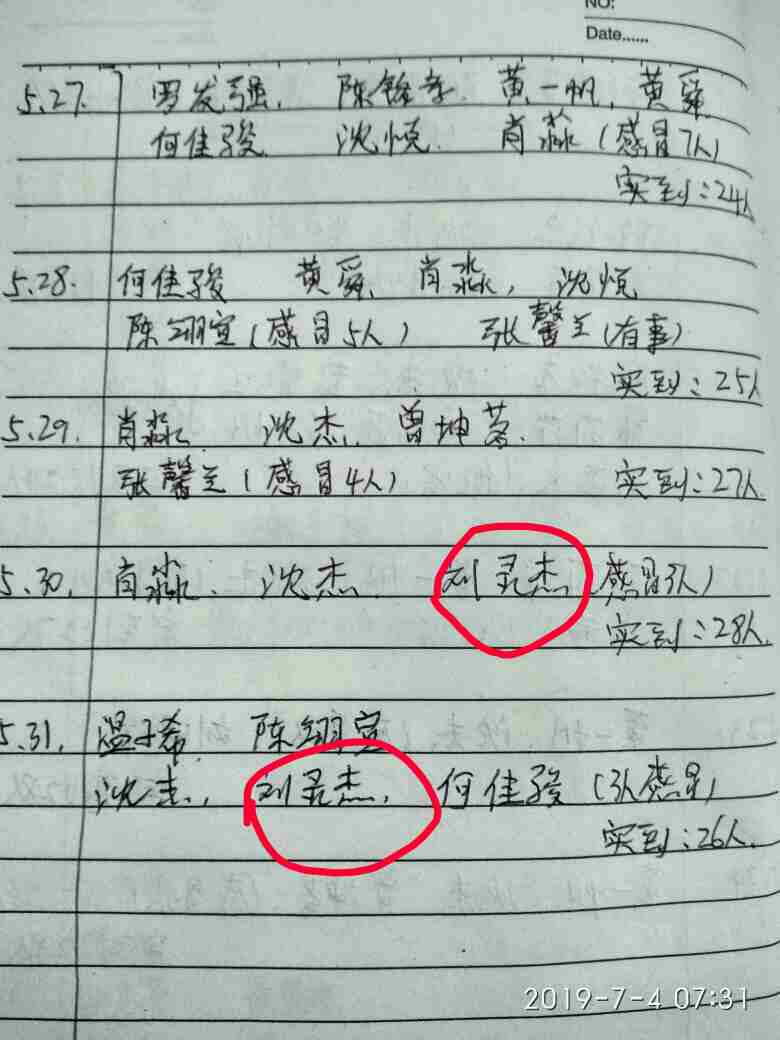 NO:
Date......
5.27. 罗发强. 陈 黄一帆. 黄舜
何佳骏 沈悦. 肖淼(感冒7人)
实到:24人
5.28. 何佳骏 黄舜、肖淼, 沈悦
陈翊宣(感冒5人) 张馨兰(有事)
实到:25人
5.29. 肖淼 沈杰. 曾坤茗.
张馨兰(感冒4人) 实到:27人
5.30. 肖淼. 沈杰 刘灵杰(感冒3人)
实到:28人.
5.31. 温子希. 陈翊宣
沈杰, 刘灵杰, 何佳骏 (感冒)
实到:26人.
2019-7-4 07:31